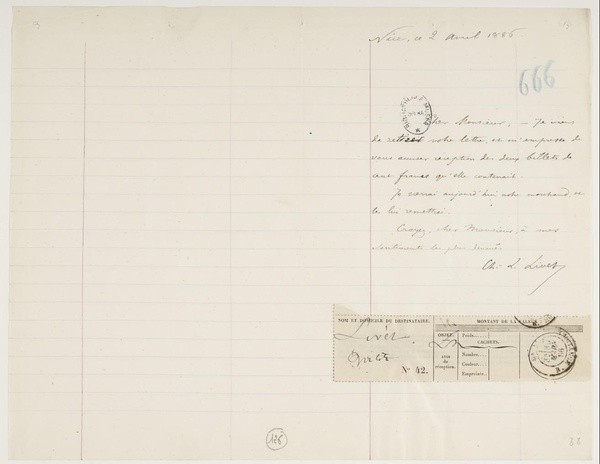 ce 2 avril 1886
666
Cher Monsieur, — Je viens
de votre lettre, et m'empresse de
vous accuser réception des deux billets de
cent francs qu'elle contenait.
Je verrai aujourd'hui votre marchand, et
les lui remettrai.
Croyez, cher Monsieur, à mes
sentiments les plus
Ch. L. Livet
NOM ET DOMICILE DU DESTINATAIRE.
MONTANT DE LA
Livet
OBJET.
Poids
CACHETS.
Nombre
Couleur
Empreinte
avis
de
réception.
N° 42.
126